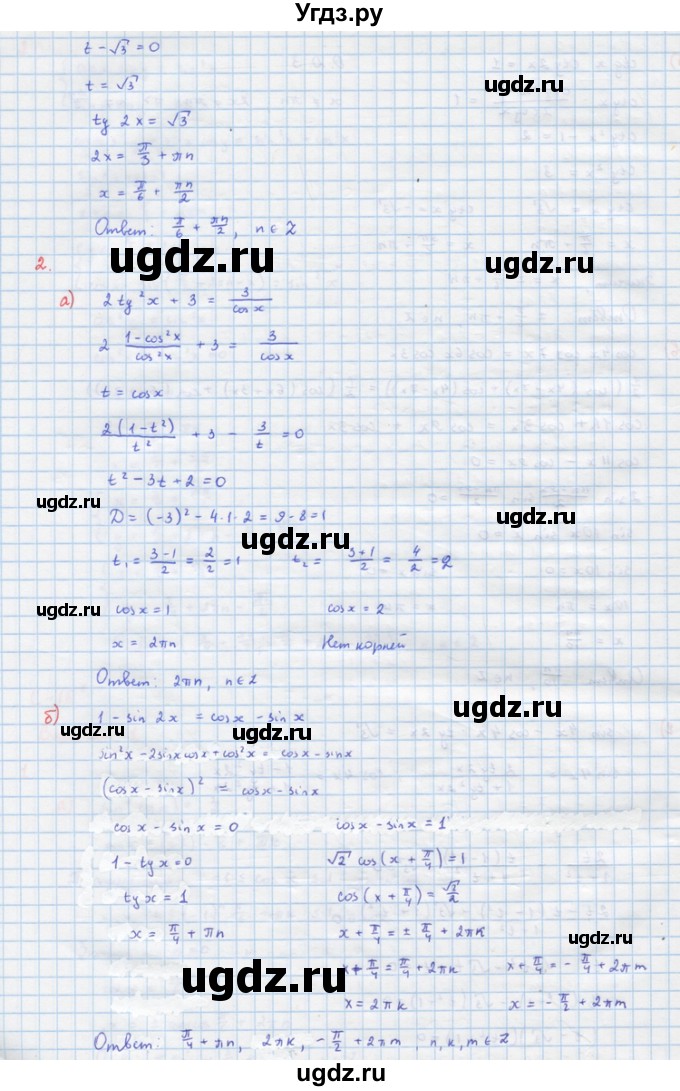 Угдз.ру
t - √3 = 0
t = √3
tg 2x = √3
2x = π/3 + πn
x = π/6 + πn/2
Ответ: π/6 + πn/2, n ∈ Z
ugdz.ru ugdz.ru
2.
а) 2 tg²x + 3 = 3/cosx
2 (1-cos²x)/cos²x + 3 = 3/cosx
t = cosx
2(1-t²)/t² + 3 - 3/t = 0
t² - 3t + 2 = 0
ugdz.ru
D = (-3)² - 4·1·2 = 9 - 8 = 1
ugdz.ru
ugdz.ru
t₁ = (3-1)/2 = 2/2 = 1 t₂ = (3+1)/2 = 4/2 = 2
ugdz.ru
cosx = 1 cosx = 2
x = 2πn Нет корней
Ответ: 2πn, n ∈ Z
ugdz.ru
б) 1 - sin 2x = cosx - sinx
ugdz.ru
sin²x - 2sinx cosx + cos²x = cosx - sinx
(cosx - sinx)² = cosx - sinx
cosx - sinx = 0 cosx - sinx = 1
1 - tgx = 0 √2 cos(x + π/4) = 1
tgx = 1 cos(x + π/4) = √2/2
x = π/4 + πn x + π/4 = ± π/4 + 2πk
ugdz.ru
ugdz.ru
x + π/4 = π/4 + 2πk x + π/4 = - π/4 + 2πm
x = 2πk x = - π/2 + 2πm
Ответ: π/4 + πn, 2πk, - π/2 + 2πm, n, k, m ∈ Z
ugdz.ru